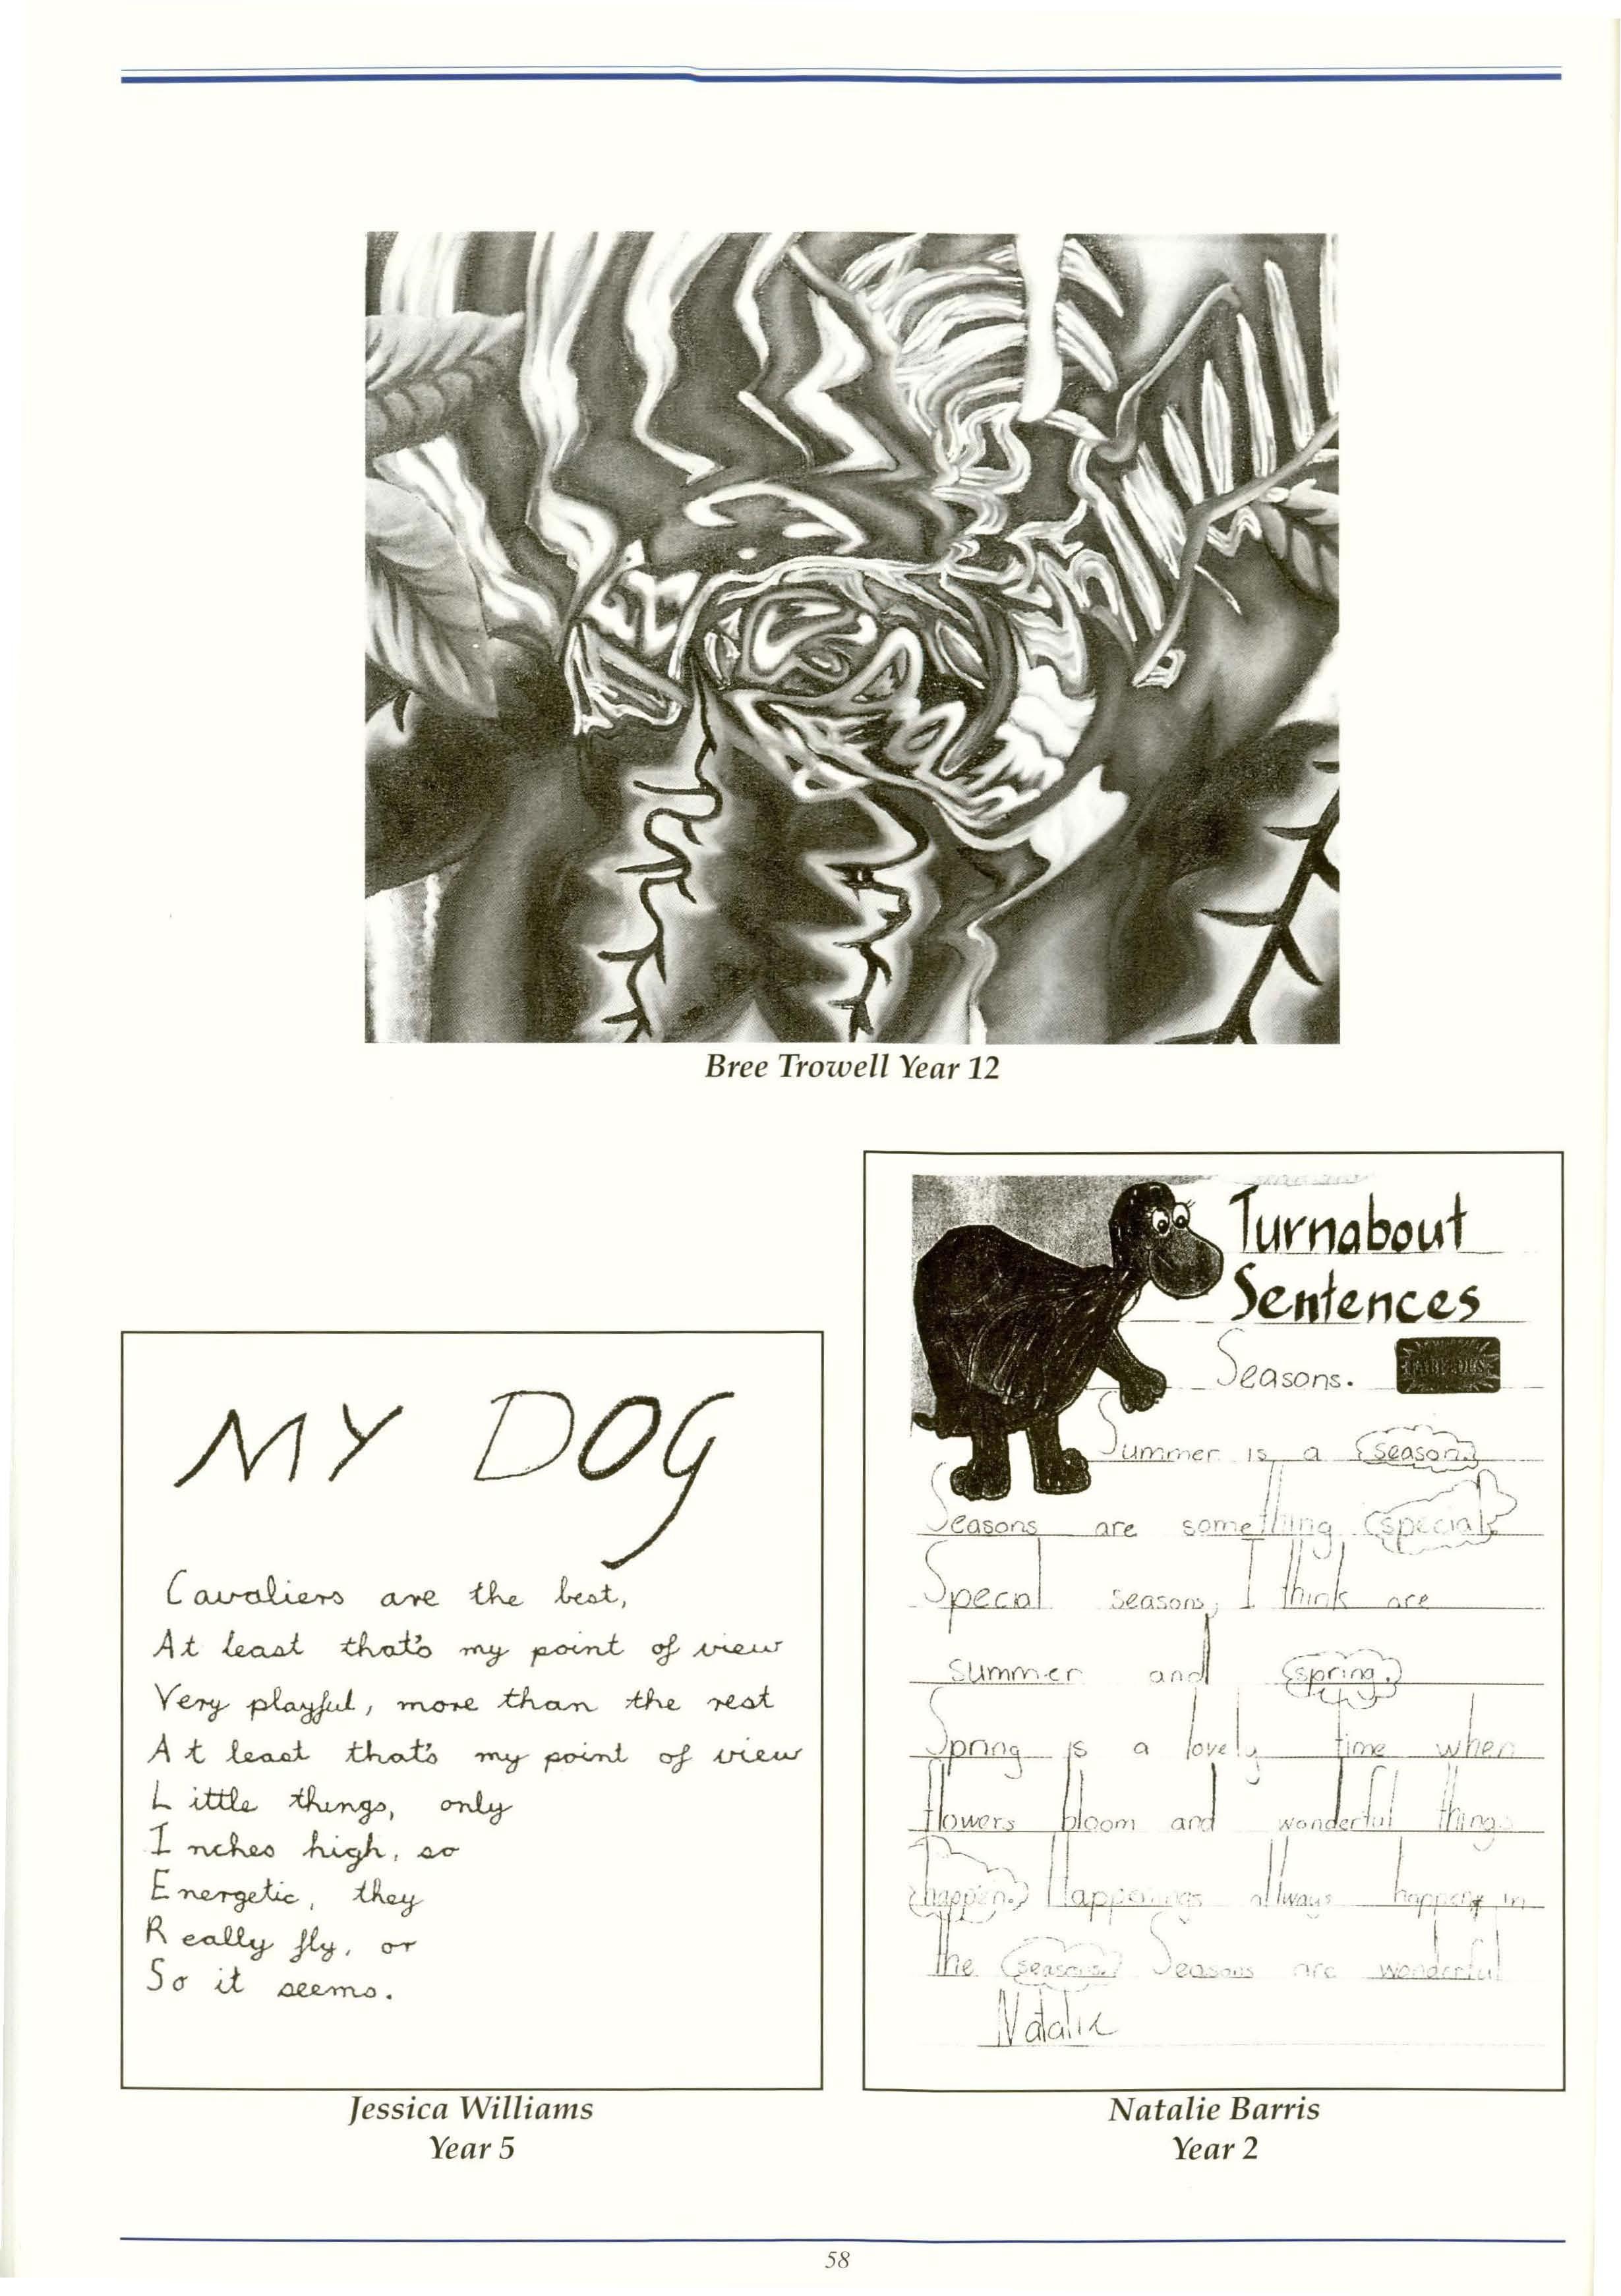 Bree Trowell Year 12
MY DOG
Cavaliers are the best,
At least that's my point of view
Very playful, more than the rest
At least that's my point of view
Little things, only
Inches high, so
Energetic, they
Really fly, or
So it seems.
Jessica Williams
Year 5
Turnabout
Sentences
Seasons.
Summer is a season.
Seasons are something special.
Special seasons, I think are
summer and spring.
Spring is a lovely time when
flowers bloom and wonderful things
happen. Happenings allways happen in
the seasons. Seasons are wonderful
Natalie
Natalie Barris
Year 2
58